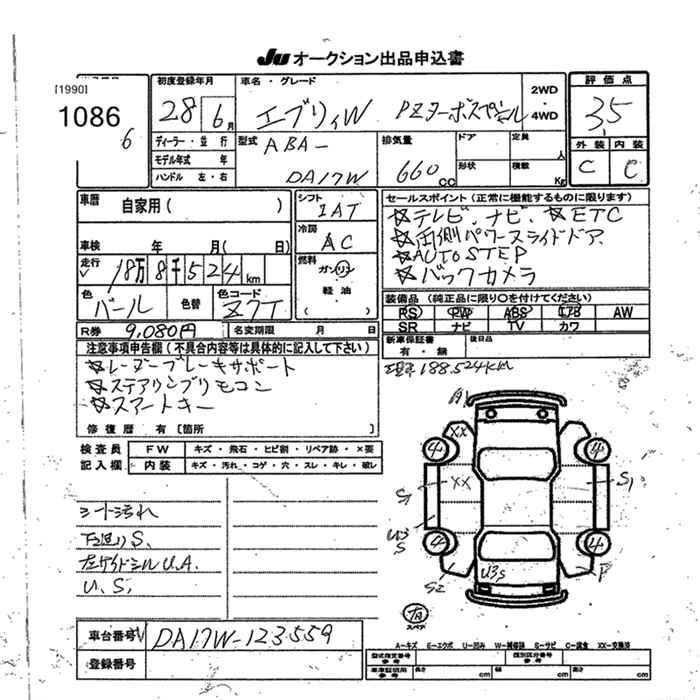 JU オークション出品申込書
[1990]
1086
6
初度登録年月
28 6月
車名・グレード
エブリィW PZターボスペシャル
2WD
・
4WD
評価点
3.5
外装 内装
C C
ディーラー・並行
モデル年式 年
ハンドル 左・右
型式
ABA-
DA17W
排気量
660cc
ドア
形状
定員
人
積載
Kg
車歴
自家用( )
シフト
IAT
車検 年 月( 日)
冷房
AC
走行
18万8千524km
燃料
ガソリン
軽油
( )
色
パール
色替
色コード
Z7T
R券 9,080円
名変期限 月 日
セールスポイント(正常に機能するものに限ります)
☆テレビ、ナビ、☆ETC
☆両側パワースライドドア
☆AUTO STEP
☆バックカメラ
装備品(純正品に限り〇を付けてください)
PS PW ABS エアB AW
SR ナビ TV カワ
新車保証書
有・無
後日品
現車188.524KM
注意事項申告欄(不具合内容等は具体的に記入して下さい)
☆レーダーブレーキサポート
☆ステアリングリモコン
☆スマートキー
修復歴 有〔箇所 〕
検査員 FW キズ・飛石・ヒビ割・リペア跡・×要
記入欄 内装 キズ・汚れ・コゲ・穴・スレ・キレ・破レ
シート汚れ
下廻りS、
左サイドシルU.A.
U、S、
A1
XX
4 4
XX
S1 S1
U3
S
4 4
S2 U3S P
有
スペア
車台番号 DA17W-123559
登録番号
A-キズ E-エクボ U-凹み W-補修跡 S-サビ C-腐食 XX-交換済
型式指定番号
参考
類別区分番号
参考
車庫証明用
参考
長さ cm 幅 cm 高さ cm